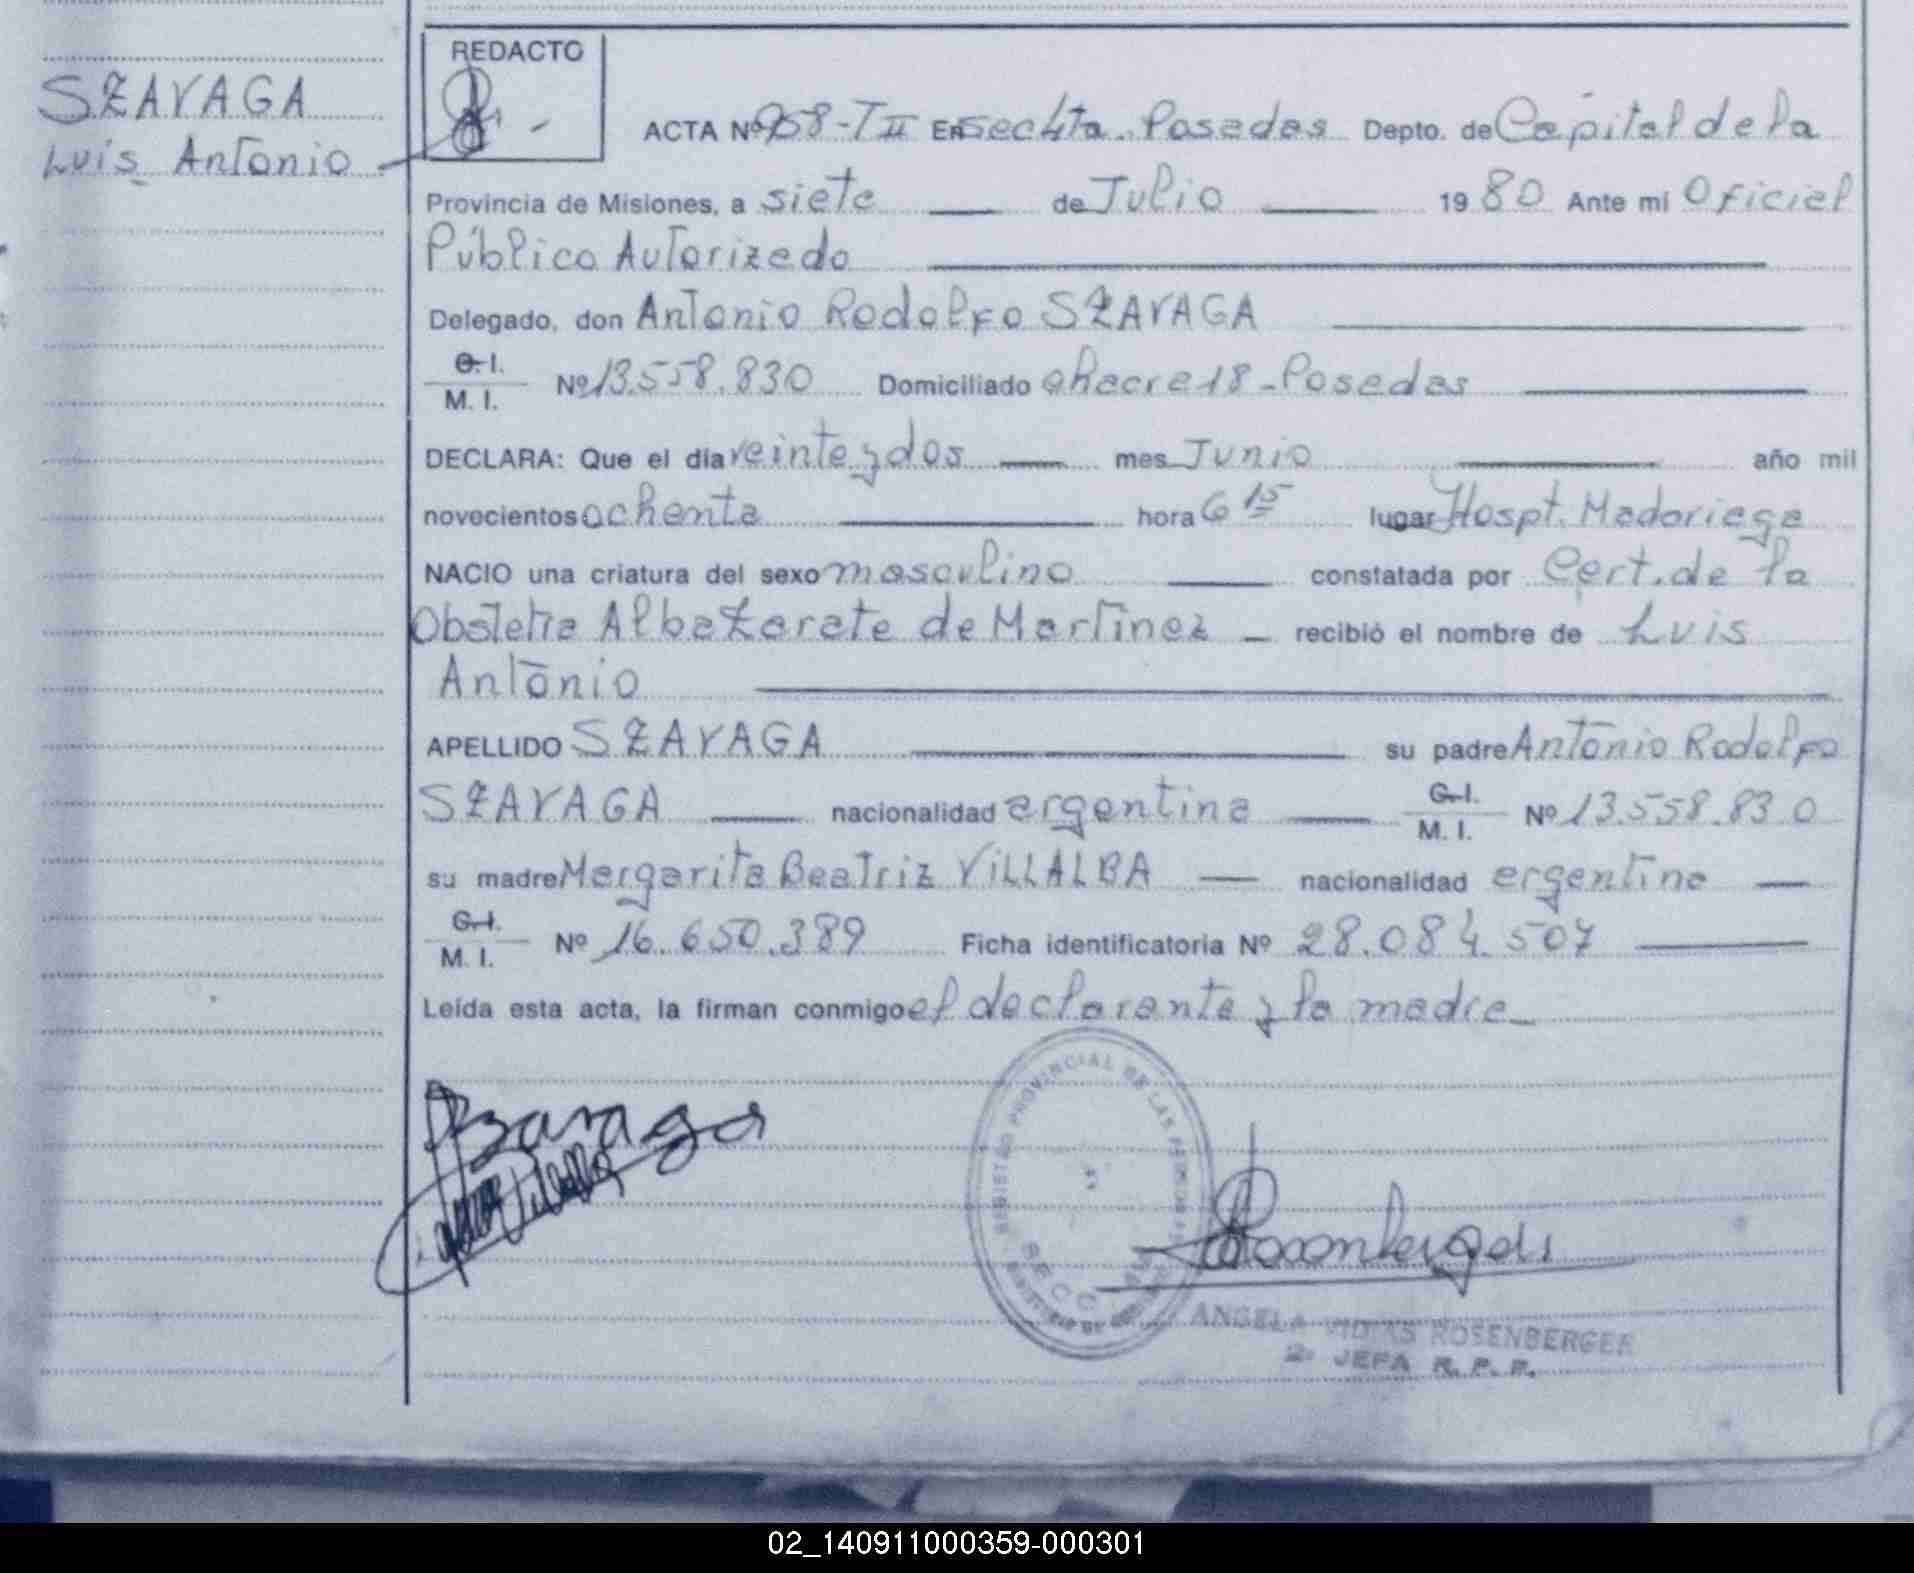 REDACTO
SZAVAGA
Luis Antonio
ACTA Nº 958-T II En Secc 4ta. Posadas Depto. de Capital de la
Provincia de Misiones, a siete de Julio 1980 Ante mi Oficial
Público Autorizado
Delegado, don Antonio Rodolfo SZAVAGA
C. I.
M. I. Nº 13.558.830 Domiciliado chacra 18 - Posadas
DECLARA: Que el día veinte y dos mes Junio año mil
novecientos ochenta hora 6 15 lugar Hospt. Madariaga
NACIO una criatura del sexo masculino constatada por Cert. de la
Obstetra Alba Zarate de Martinez recibió el nombre de Luis
Antonio
APELLIDO SZAVAGA su padre Antonio Rodolfo
SZAVAGA nacionalidad argentina C. I.
M. I. Nº 13.558.830
su madre Margarita Beatriz VILLALBA nacionalidad argentina
C. I.
M. I. Nº 16.650.389 Ficha identificatoria Nº 28.084.507
Leída esta acta, la firman conmigo el declarante y la madre
REGISTRO PROVINCIAL DE LAS PERSONAS
SECC
ANGELA ROSENBERGER
2º JEFA R. P. P.
02_140911000359-000301